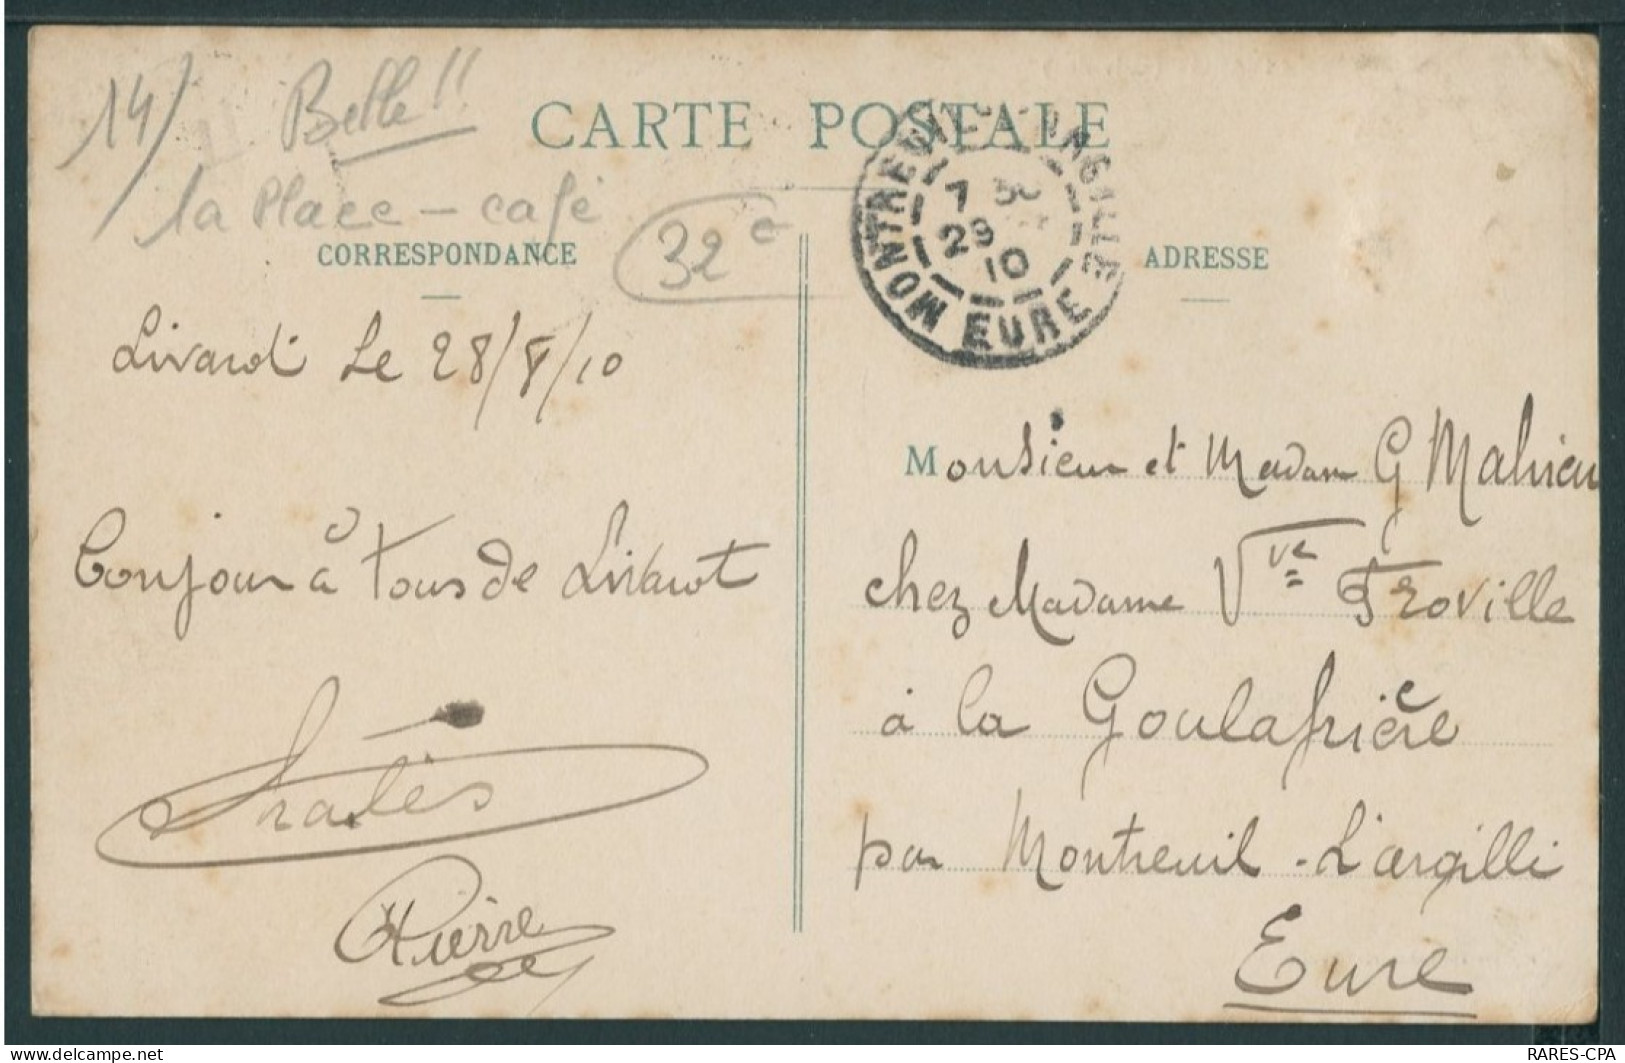 14/ Belle !!
la Place - café
32 c
CARTE POSTALE
CORRESPONDANCE
ADRESSE
MONTREUIL-L'ARGILLE EURE
7 30
29
10
Livarot Le 28/8/10
Bonjour à tous de Livarot
Pierre
Monsieur et Madam G Mahieu
chez Madame Vve Froville
à la Goulafrière
par Montreuil-L'argillé
Eure
delcampe.net
RARES-CPA